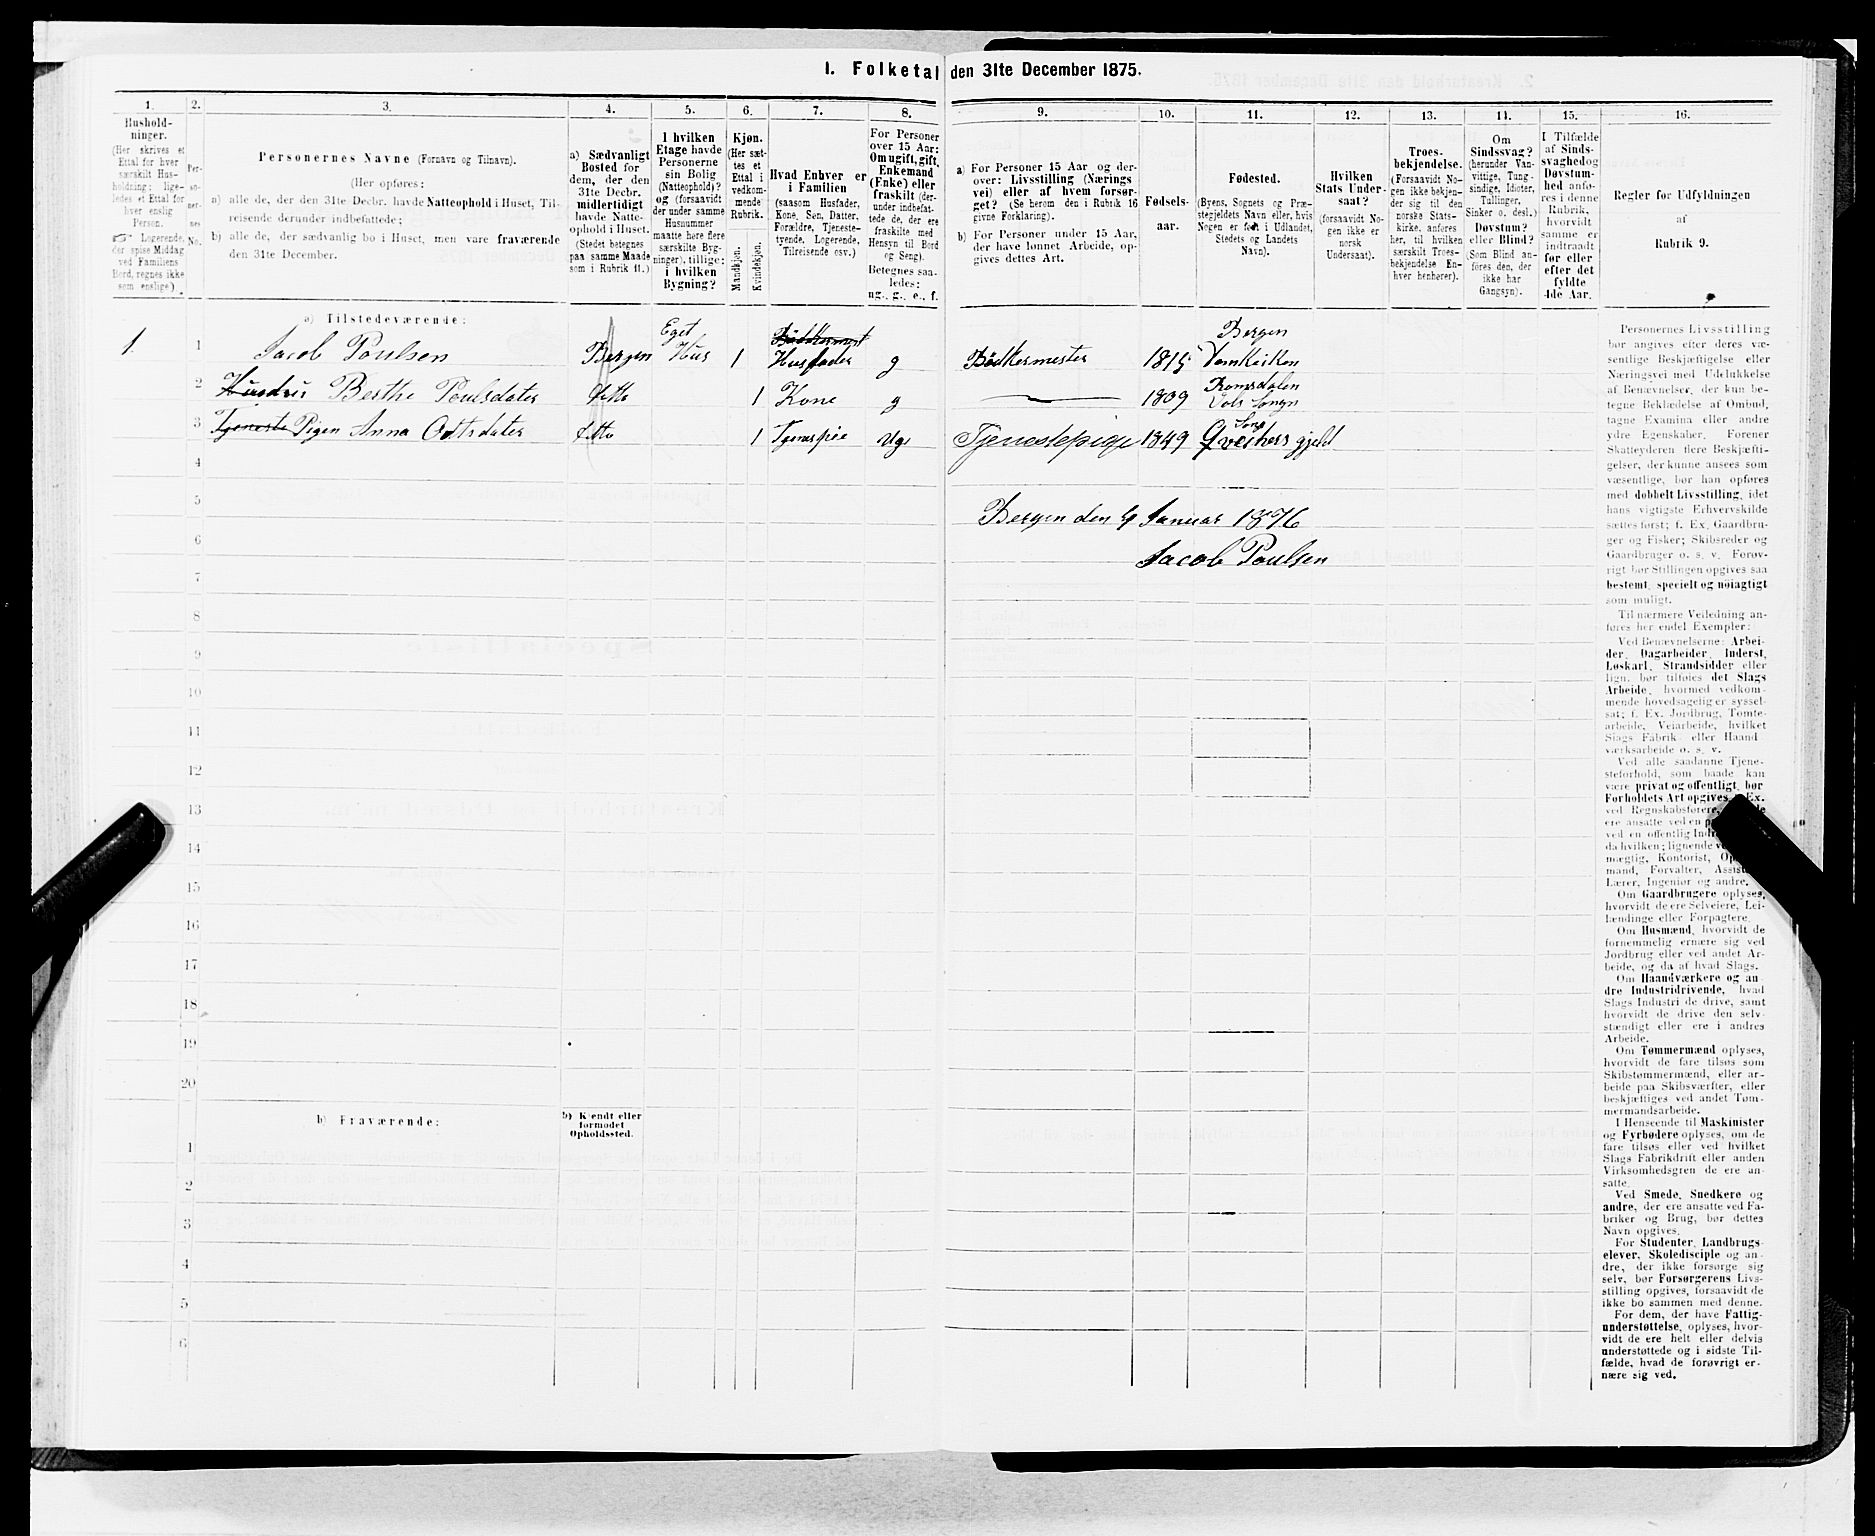 1. Folketal den 31te December 1875.
1.
Hushold-
ninger.
(Her skrives et
Ettal for hver
særskilt Hus-
holdning; lige-
ledes et Ettal for
hver enslig
Person.
☞ Logerende,
der spise Middag
ved Familiens
Bord, regnes ikke
som enslige).
2.
Per-
so-
ner-
nes
No.
3.
Personernes Navne (Fornavn og Tilnavn).
(Her opføres:
a) alle de, der den 31te Decbr. havde Natteophold i Huset, Til-
reisende derunder indbefattede;
b) alle de, der sædvanlig bo i Huset, men vare fraværende
den 31te December.
4.
a) Sædvanligt
Bosted for
dem, der den
31te Decbr.
midlertidigt
havde Natte-
ophold i Huset.
(Stedet betegnes
paa samme Maade
som i Rubrik 11.)
5.
I hvilken
Etage havde
Personerne
sin Bolig
(Natteophold)?
og (forsaavidt
der under samme
Husnummer
maatte høre flere
særskilte Byg-
ninger), tillige:
i hvilken
Bygning?
6.
Kjøn.
(Her sæt-
tes et
Ettal i
vedkom-
mende
Rubrik.
Mandkjøn.
Kvindekjøn.
7.
Hvad Enhver er
i Familien
(saasom Husfader,
Kone, Søn, Datter,
Forældre, Tjeneste-
tyende, Logerende,
Tilreisende osv.)
8.
For Personer
over 15 Aar:
Om ugift, gift,
Enkemand
(Enke) eller
fraskilt (der-
under indbefat-
tede de, der ere
fraskilte med
Hensyn til Bord
og Seng).
Betegnes saa-
ledes:
ug., g., e., f.
9.
a) For Personer 15 Aar og der-
over: Livsstilling (Nærings
vei) eller af hvem forsør-
get? (Se herom den i Rubrik 16
givne Forklaring).
b) For Personer under 15 Aar,
der have lønnet Arbeide, op-
gives dettes Art.
10.
Fødsels-
aar.
11.
Fødested.
(Byens, Sognets og Præ-
stegjeldets Navn eller, hvis
Nogen er født i Udlandet,
Stedets og Landets
Navn).
12.
Hvilken
Stats Under-
saat?
(forsaavidt No-
gen ikke er
norsk
Undersaat).
13.
Troes-
bekjendelse.
(Forsaavidt No-
gen ikke bekjen-
der sig til den
norske Stats-
kirke, anføres
her, til hvilken
særskilt Troes-
bekjendelse En-
hver henhører).
14.
Om
Sindssvag?
(herunder Van-
vittige, Tung-
sindige, Idioter,
Tullinger,
Sinker o. desl.)
Døvstum?
eller Blind?
(Som Blind an-
føres den, der
ikke har
Gangsyn).
15.
I Tilfælde
af Sinds-
svaghed og
Døvstum-
hed anfø-
res i denne
Rubrik,
hvorvidt
samme er
indtraadt
før eller
efter det
fyldte
4de Aar.
16.
Regler for Udfyldningen
af
Rubrik 9.
a) Tilstedeværende:
1. 1 Jacob Poulsen Bergen Eget Hus 1 Bödkermest Husfader g Bödkermester 1815 Bergen Domkirken
2 Berthe Poulsdater ditto 1 Kone g 1809 Romsdalen
3 Tjeneste Pigen Anna Odtsdater ditto 1 Tjenspie Ug Tjenestepige 1849
4
5
Bergen den 4 Januar 1876
6
Jacob Poulsen
7
8
9
10
11
12
13
14
15
16
17
18
19
20
b) Fraværende:
b) Kjendt eller
formodet
Opholdssted.
1
2
3
4
5
6
Personernes Livsstilling
bør angives efter deres væ-
sentlige Beskjæftigelse eller
Næringsvei med Udelukkelse
af Benævnelser, der kun be-
tegne Beklædelse af Ombud,
tagne Examina eller andre
ydre Egenskaber. Forener
Skatteyderen flere Beskjæfti-
gelser, der kunne ansees som
væsentlige, bør han opføres
med dobbelt Livsstilling, idet
hans vigtigste Erhvervskilde
sættes først; f. Ex. Gaardbru-
ger og Fisker; Skibsreder og
Gaardbruger o. s. v. Forøv-
rigt bør Stillingen opgives saa
bestemt, specielt og nöiagtigt
som muligt.
Til nærmere Veiledning an-
føres her endel Exempler:
Ved Benævnelserne: Arbei-
der, Dagarbeider, Inderst,
Løskarl, Strandsidder eller
lign. bør tilføies det Slags
Arbeide, hvormed vedkom-
mende hovedsagelig er syssel-
sat; f. Ex. Jordbrug, Tomte-
arbeide, Veiarbeide, hvilket
Slags Fabrik- eller Haand
værksarbeide o. s. v.
Ved alle saadanne Tjene-
steforhold, som baade kan
være privat og offentligt, bør
Forholdets Art opgives,
ved Regnskabsførere,
ere ansatte ved en
ved en offentlig
da hvilken; lignende
mægtig, Kontorist,
mand, Forvalter,
Lærer, Ingeniør og andre.
Om Gaardbrugere oplyses,
hvorvidt de ere Selveiere, Lei-
lændinge eller Forpagtere.
Om Husmænd, hvorvidt de
fornemmelig ernære sig ved
Jordbrug eller ved andet Ar-
beide, og da af hvad Slags.
Om Haandværkere og an-
dre Industridrivende, hvad
Slags Industri de drive, samt
hvorvidt de drive den selv-
stændigt eller ere i andres
Arbeide.
Om Tømmermænd oplyses,
hvorvidt de fare tilsøs som
Skibstømmermænd, eller ar-
beide paa Skibsværfter, eller
beskjæftiges ved andet Tøm-
mermandsarbeide.
I Henseende til Maskinister
og Fyrbødere oplyses, om de
fare tilsøs eller ved hvilket
Slags Fabrikdrift eller anden
Virksomhedsgren de ere an-
satte.
Ved Smede, Snedkere og
andre, der ere ansatte ved Fa-
briker og Brug, bør dettes
Navn opgives.
For Studenter, Landbrugs-
elever, Skoledisciple og an-
dre, der ikke forsørge sig
selv, bør Forsørgerens Livs-
stilling opgives, forsaavidt de
ikke bo sammen med denne.
For dem, der have Fattig-
understøttelse, oplyses, hvor-
vidt de ere helt eller delvis
understøttede og i sidste Til-
fælde, hvad de forøvrigt er-
nære sig ved.